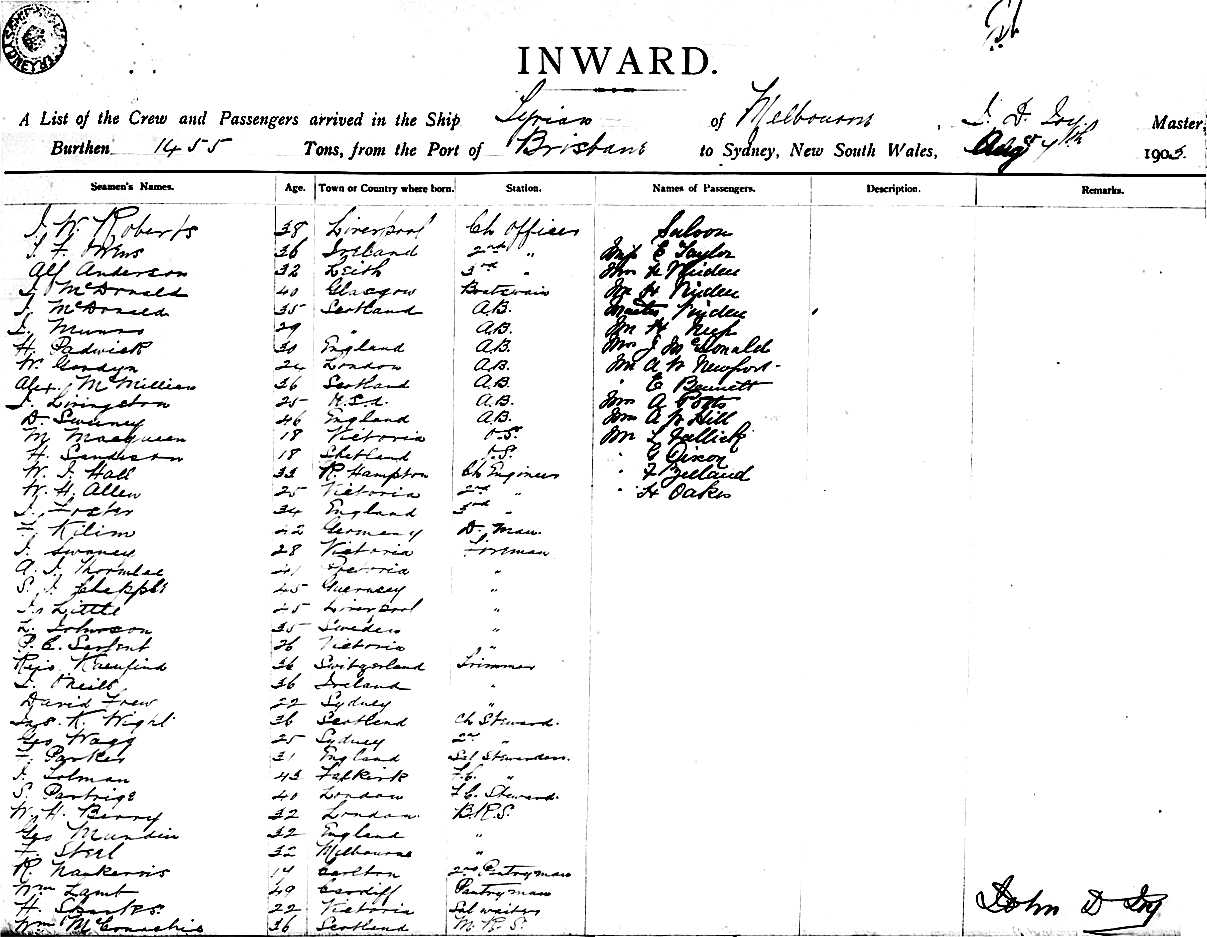 INWARD.
A List of the Crew and Passengers arrived in the Ship Syrian of Melbourne, J. D. Joy Master
Burthen 1455 Tons, from the Port of Brisbane to Sydney, New South Wales, Augst 7th 1905.
Seamen's Names. Age. Town or Country where born. Station. Names of Passengers. Description. Remarks.
J. W. Roberts 38 Liverpool Ch Officer Saloon
J. F. Owens 36 Ireland 2nd " E Taylor
Alf Anderson 32 Leith 3rd "
J. McDonald 40 Glasgow Boatswain Mr H
J. McDonald 35 Scotland A.B. Master
J. Munro 29 " A.B. Mr H
H. Padwick 30 England A.B. Mrs J McDonald
W. 24 London A.B. Mr A W Newport
Alex. McMillan 36 Scotland A.B. " E Bennett
J. Livingston 25 A.B. Mrs A Potts
D. Swaney 46 England A.B. Mrs A W Hill
M. Macqueen 18 Victoria O.S. Mr L
H. Sanderson 18 Shetland O.S. " G Dixon
W. J. Hall 33 R. Hampton Ch Engineer " F
W. H. Allen 25 Victoria 2nd " " H Oakes
J. Foster 34 England 3rd "
F. Kilim 42 Germany D. Man.
J. Swaney 28 Victoria Fireman
A. J. "
S. J. 45 Guernsey "
Js Little 25 Liverpool "
Johnson 35 Sweden "
P. E. 26 Victoria "
36 Switzerland Trimmer
J. O'Neill 36 Ireland "
David Frew 22 Sydney "
Jas. K. Wight 36 Scotland Ch Steward.
Geo Wagg 25 Sydney 2nd "
F. Parkes 31 England
J. Tolman 43 Falkirk F.C. "
S. Partrige 40 London F.C. Steward.
W. H. Berry 32 London B.R.S.
Geo Mundin 32 England "
F. Steel 32 Melbourne "
R. Nankervis 19 Carlton 2nd Pantryman
Wm Lamb 40 Cardiff Pantryman
H. Sparkes. 22 Victoria Sal waiter
Wm McConachie 36 Scotland M.R.S.
John D Joy